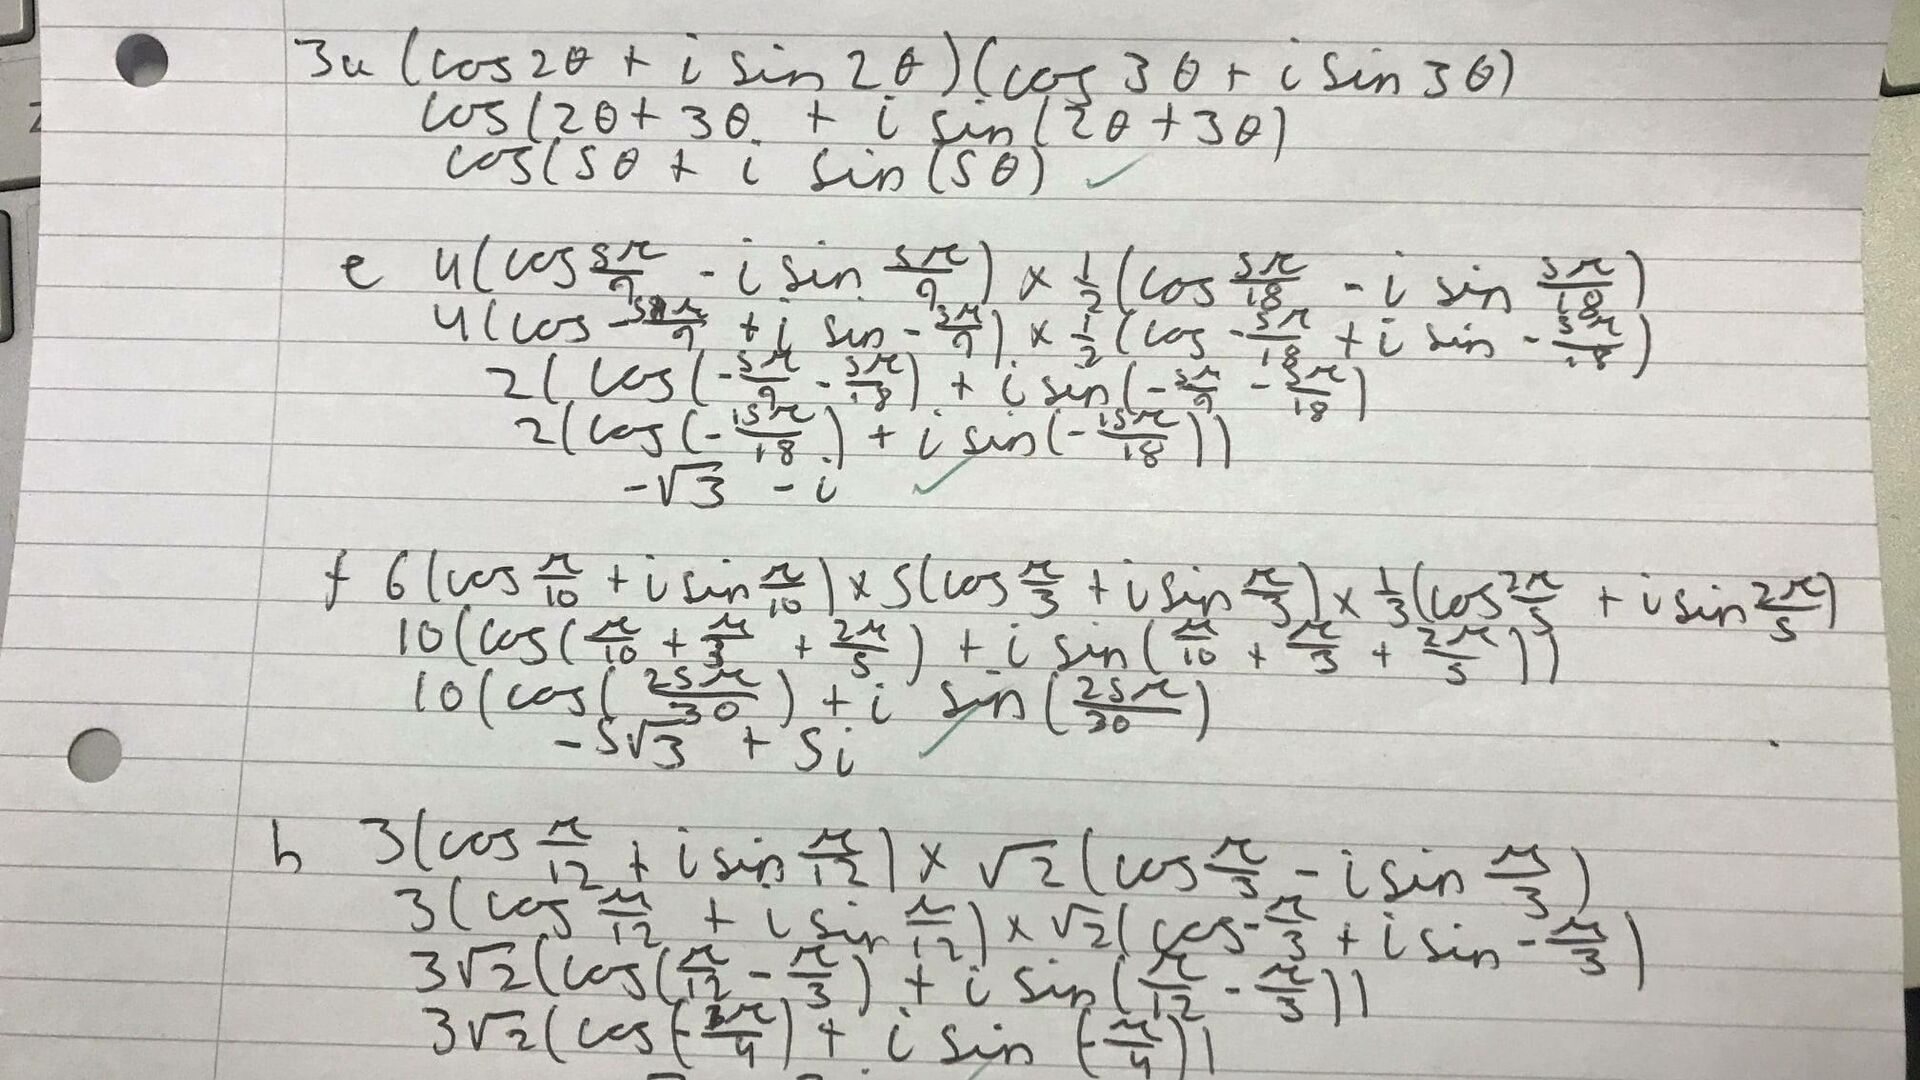 3a (cos2θ + i sin 2θ)(cos 3θ + i sin 3θ)
cos(2θ + 3θ + i sin(2θ + 3θ)
cos(5θ + i sin (5θ) ✓
e 4(cos 5π/9 - i sin 5π/9) × 1/2 (cos 5π/18 - i sin 5π/18)
4(cos -5π/9 + i sin -5π/9) × 1/2 (cos -5π/18 + i sin -5π/18)
2( cos(-5π/9 - 5π/18) + i sin(-5π/9 - 5π/18)
2(cos(-15π/18) + i sin(-15π/18))
-√3 - i ✓
f 6(cos π/10 + i sin π/10) × 5(cos π/3 + i sin π/3) × 1/3 (cos 2π/5 + i sin 2π/5)
10(cos(π/10 + π/3 + 2π/5) + i sin(π/10 + π/3 + 2π/5))
10(cos(25π/30) + i sin(25π/30)
-5√3 + 5i ✓
h 3(cos π/12 + i sin π/12) × √2(cos π/3 - i sin π/3)
3(cos π/12 + i sin π/12) × √2(cos -π/3 + i sin -π/3)
3√2(cos(π/12 - π/3) + i sin(π/12 - π/3))
3√2(cos(-π/4) + i sin (-π/4))